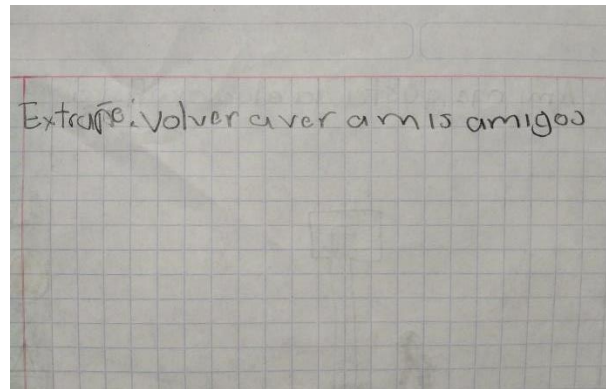 Extrañe: volver a ver a mis amigos